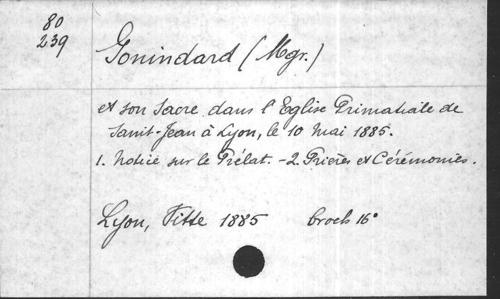 80
239
Gonindard (Mgr.)
et son Sacre dans l'Eglise Primatiale de
Saint-Jean à Lyon, le 10 Mai 1885.
1. Notice sur le Prélat. - 2. Prières et Cérémonies.
Lyon, Vitte 1885 broch 16°